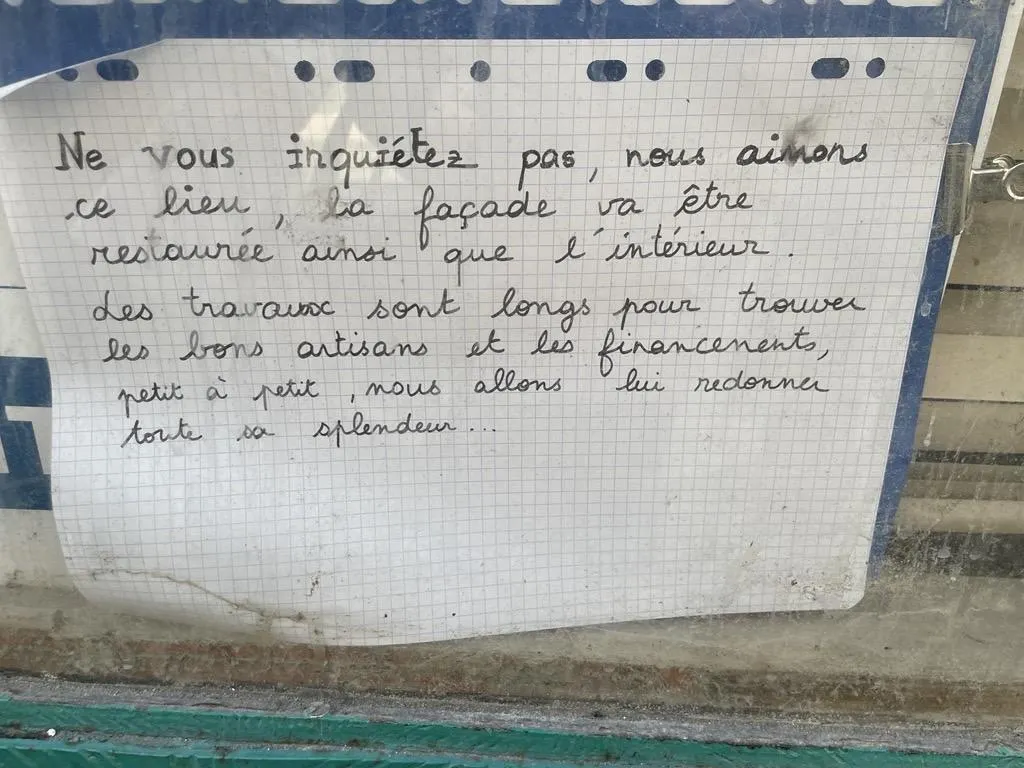 Ne vous inquiétez pas, nous aimons
ce lieu, la façade va être
restaurée ainsi que l'intérieur.
Les travaux sont longs pour trouver
les bons artisans et les financements,
petit à petit, nous allons lui redonner
toute sa splendeur...